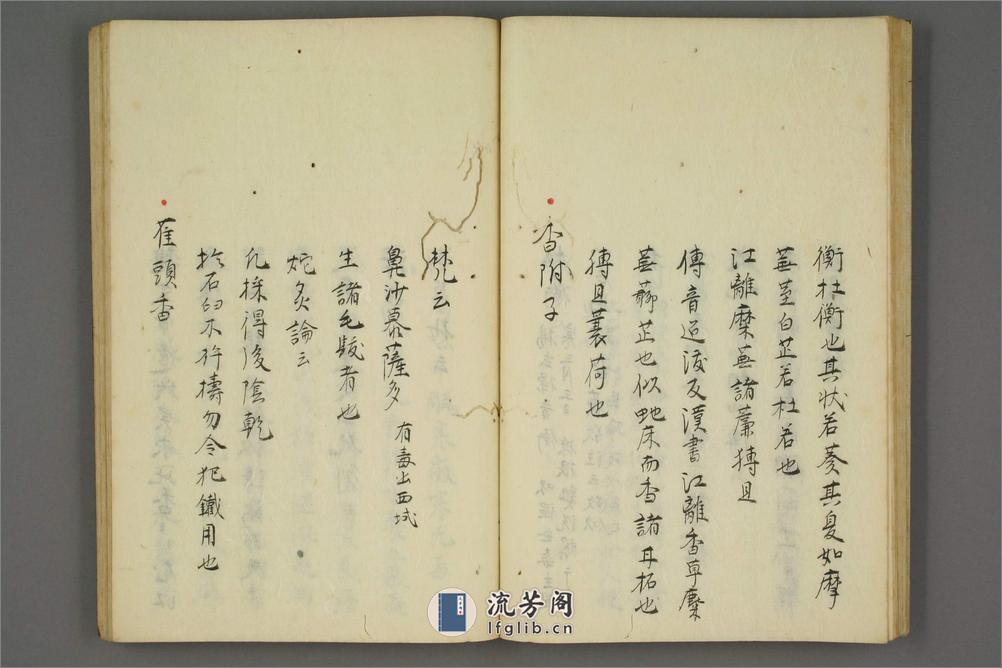 衡杜衡也其状若葵其臭如摩
蕪茎白芷若杜若也
江離麋蕪諸蔗猼且
傅音迊浚反漢書江離香草麋
蕪蘄芷也似虵床而香諸耳柘也
猼且蘘荷也
香附子
梵云
鼻沙慕薩多 有毒出西域
生諸毛髮者也
炮灸論云
凡採得後陰乾
於石臼木杵擣勿令犯鐵用也
雀頭香
流芳阁
lfglib.cn